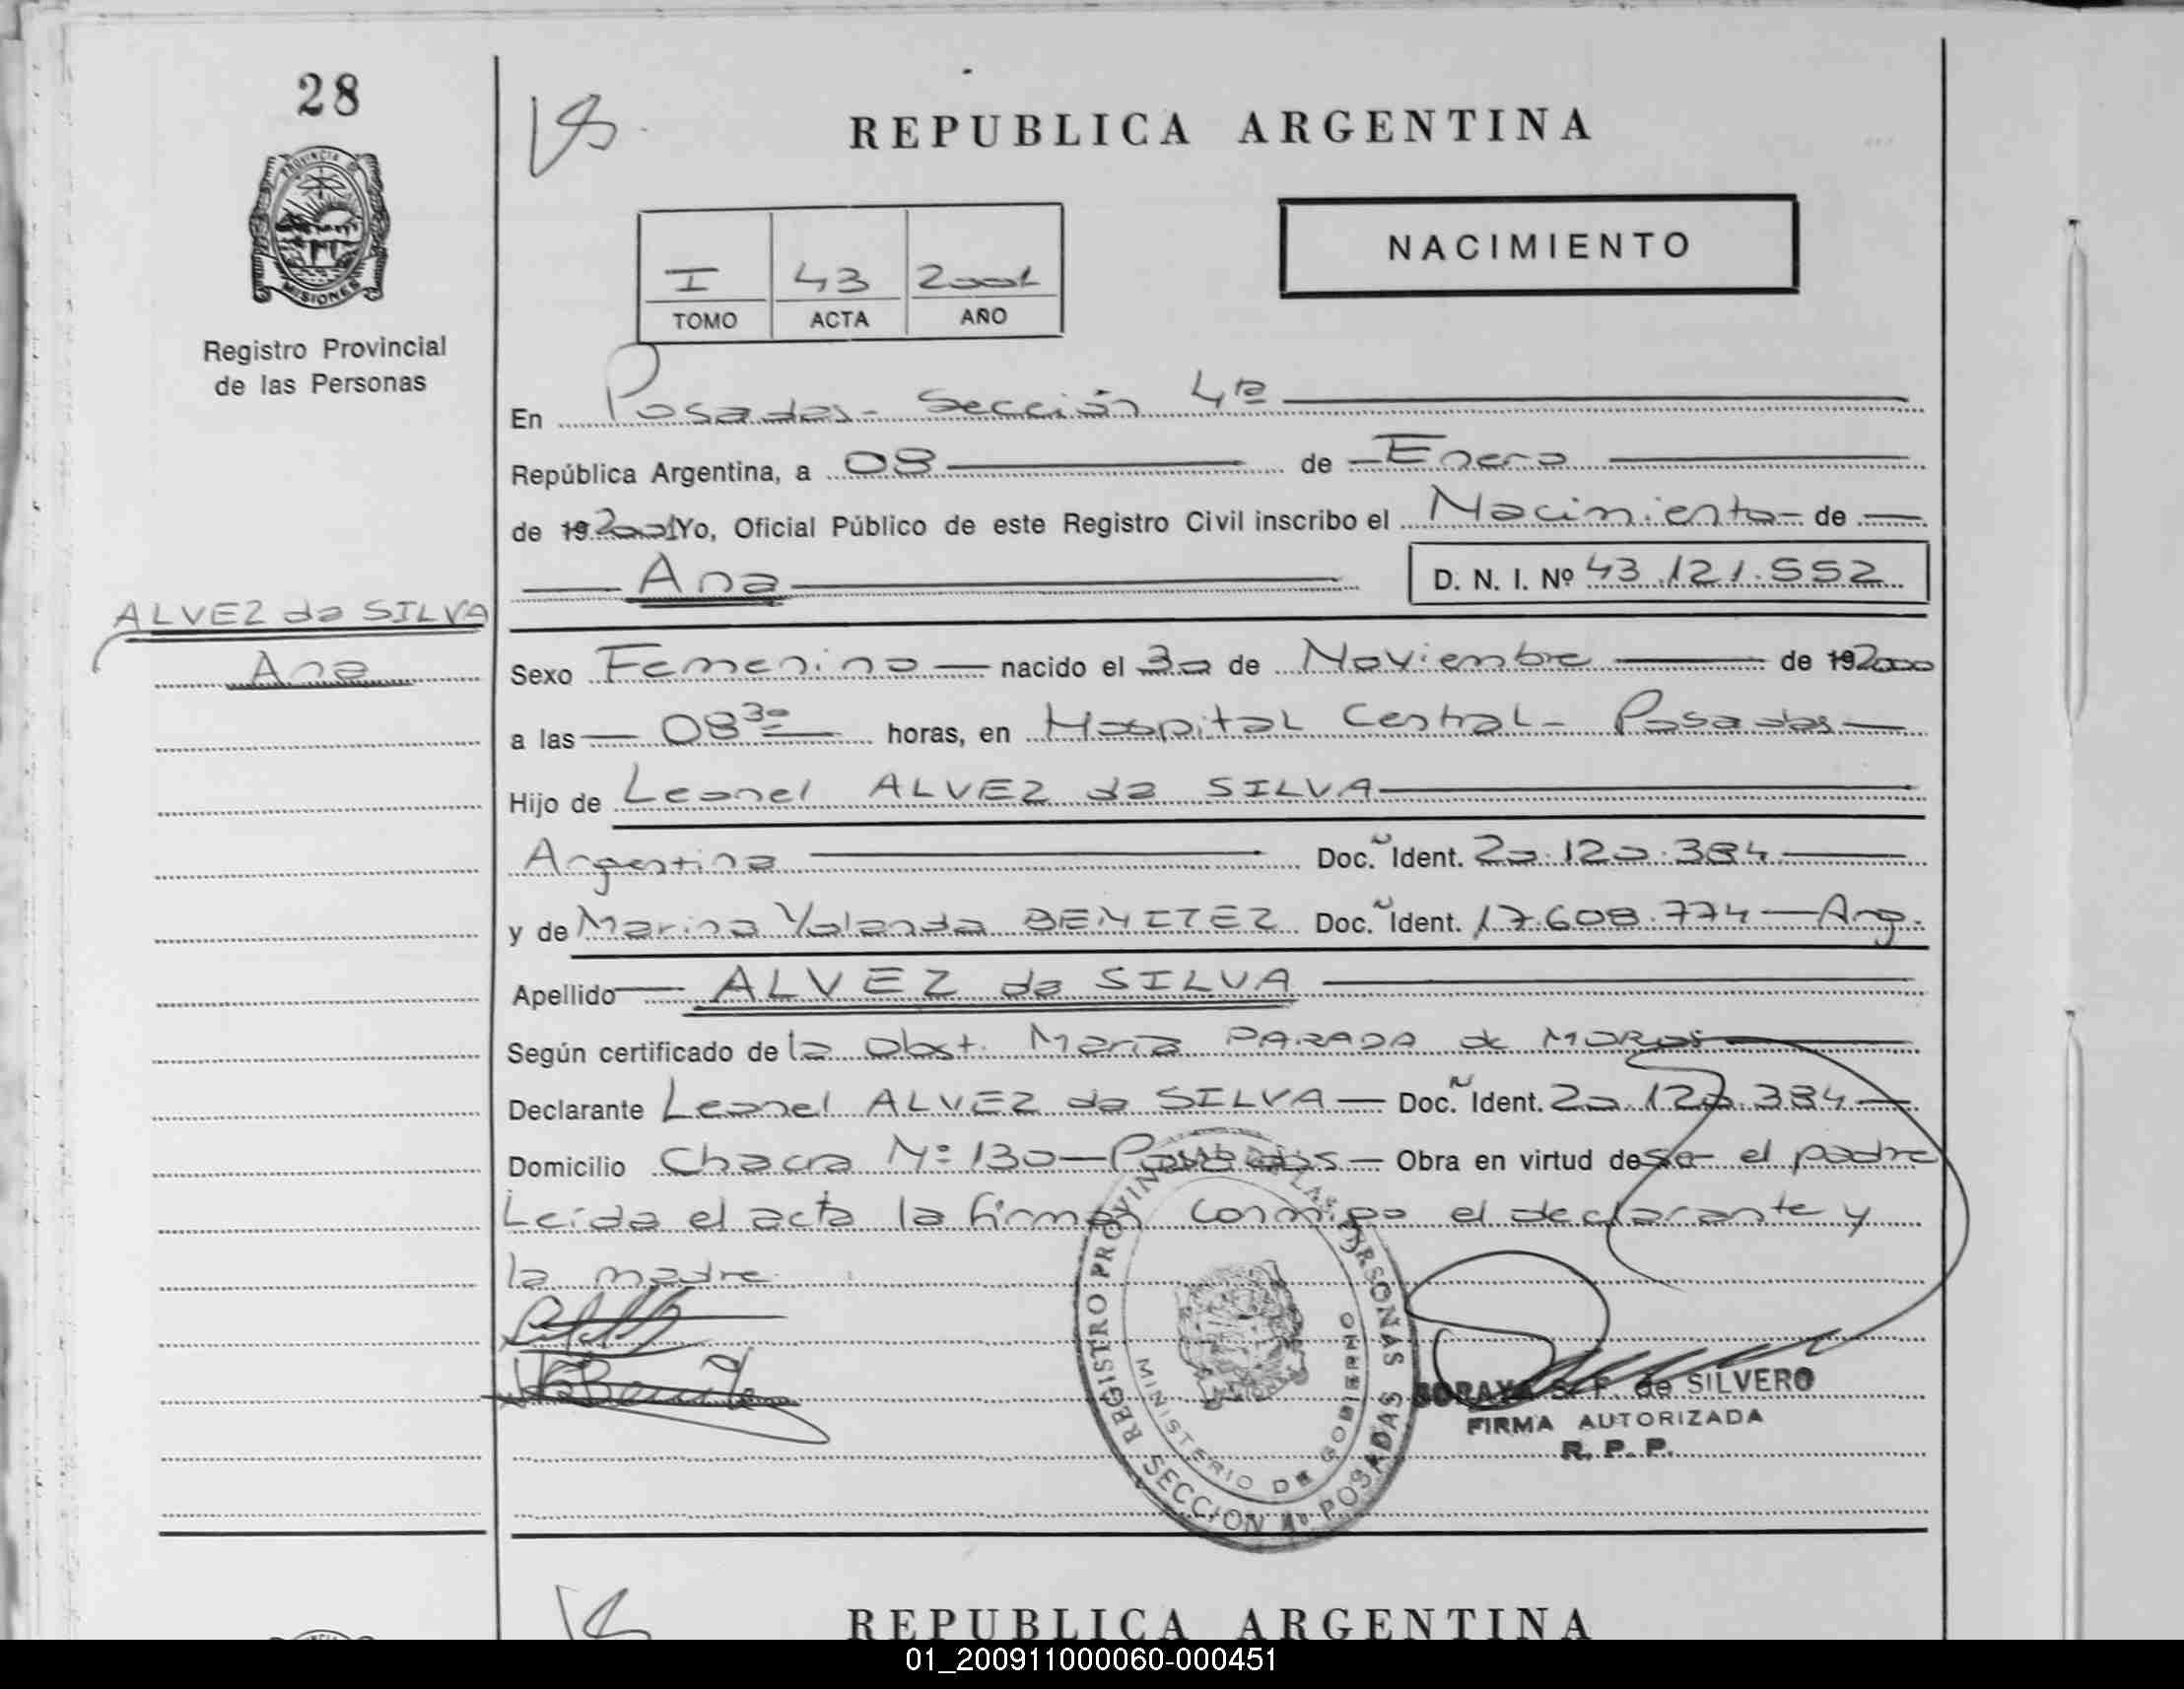 28
REPUBLICA ARGENTINA
PROVINCIA DE
MISIONES
Registro Provincial
de las Personas
NACIMIENTO
I 43 2001
TOMO ACTA AÑO
En Posadas - Sección 4ta
República Argentina, a 08 de Enero
de 19 2001 Yo, Oficial Público de este Registro Civil inscribo el Nacimiento - de
Ana D. N. I. Nº 43.121.552
ALVEZ da SILVA
Ana
Sexo Femenino nacido el 30 de Noviembre de 19 2000
a las 08 30 horas, en Hospital Central - Posadas
Hijo de Leonel ALVEZ da SILVA
Argentina Doc. Ident. 20.120.384
y de Marina Yolanda BENITEZ Doc. Ident. 17.608.774 - Arg.
Apellido ALVEZ da SILVA
Según certificado de la Obst. María PARADA de
Declarante Leonel ALVEZ da SILVA - Doc. Ident. 20.120.384
Domicilio Chacra Nº 130 - Posadas - Obra en virtud de ser el padre
Leída el acta la firman conmigo el declarante y
la madre
REGISTRO PROVINCIAL DE LAS PERSONAS
MINISTERIO DE GOBIERNO
SECCION 4º POSADAS
SORAYA S. F. de SILVERO
FIRMA AUTORIZADA
R. P. P.
REPUBLICA ARGENTINA
01_200911000060-000451